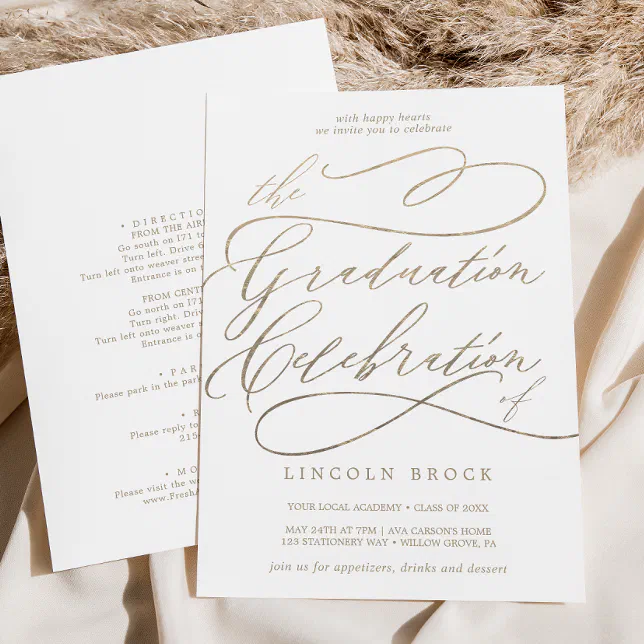 with happy hearts
we invite you to celebrate
the
Graduation
Celebration
of
LINCOLN BROCK
YOUR LOCAL ACADEMY • CLASS OF 20XX
MAY 24TH AT 7PM | AVA CARSON'S HOME
123 STATIONERY WAY • WILLOW GROVE, PA
join us for appetizers, drinks and dessert
• DIRECTIO
FROM THE AIR
Go south on I71 to
Turn left. Drive 6
Turn left onto weaver stree
Entrance is on t
FROM CENT
Go north on I71
Turn right. Drive
Turn left onto weaver s
Entrance is
• PAR
Please park in the park
• R
Please reply to
215-
• MO
Please visit the w
www.FreshA